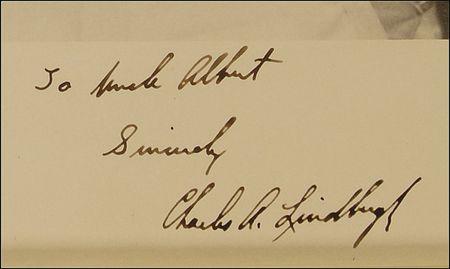 To Uncle Albert
Sincerely
Charles A. Lindbergh